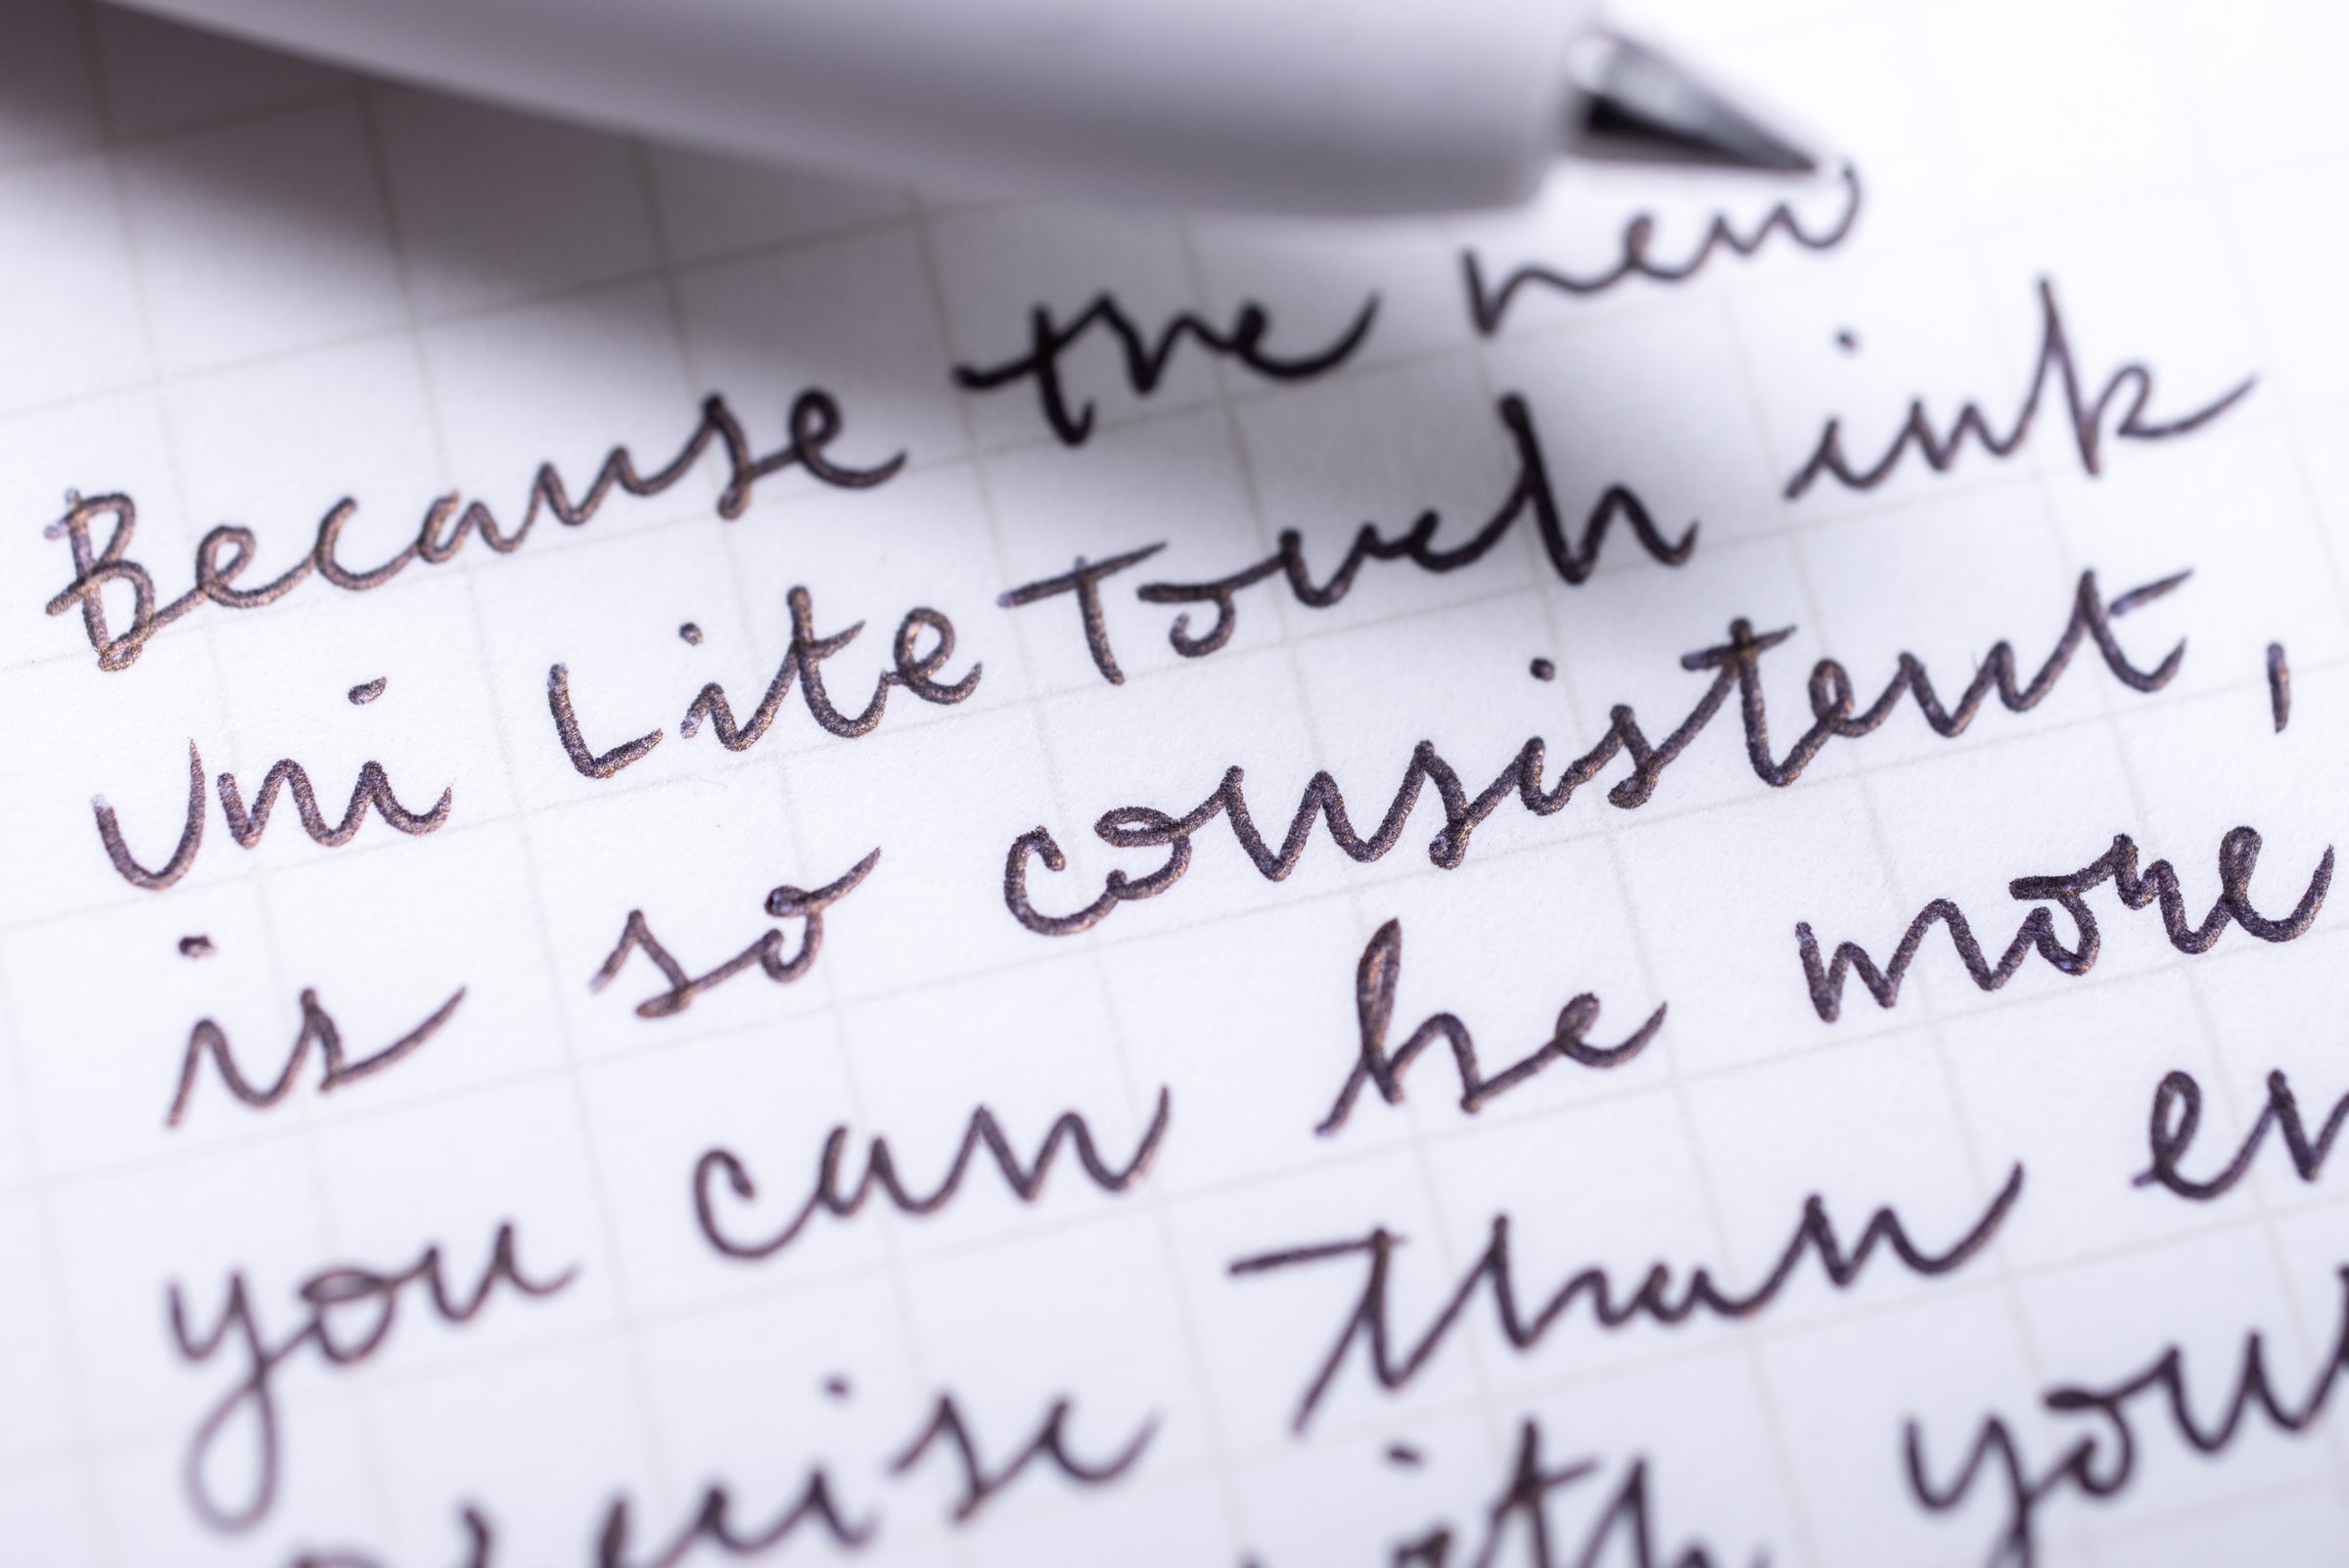 Because the new
Uni Lite Touch ink
is so consistent,
you can be more
precise than ev
with your